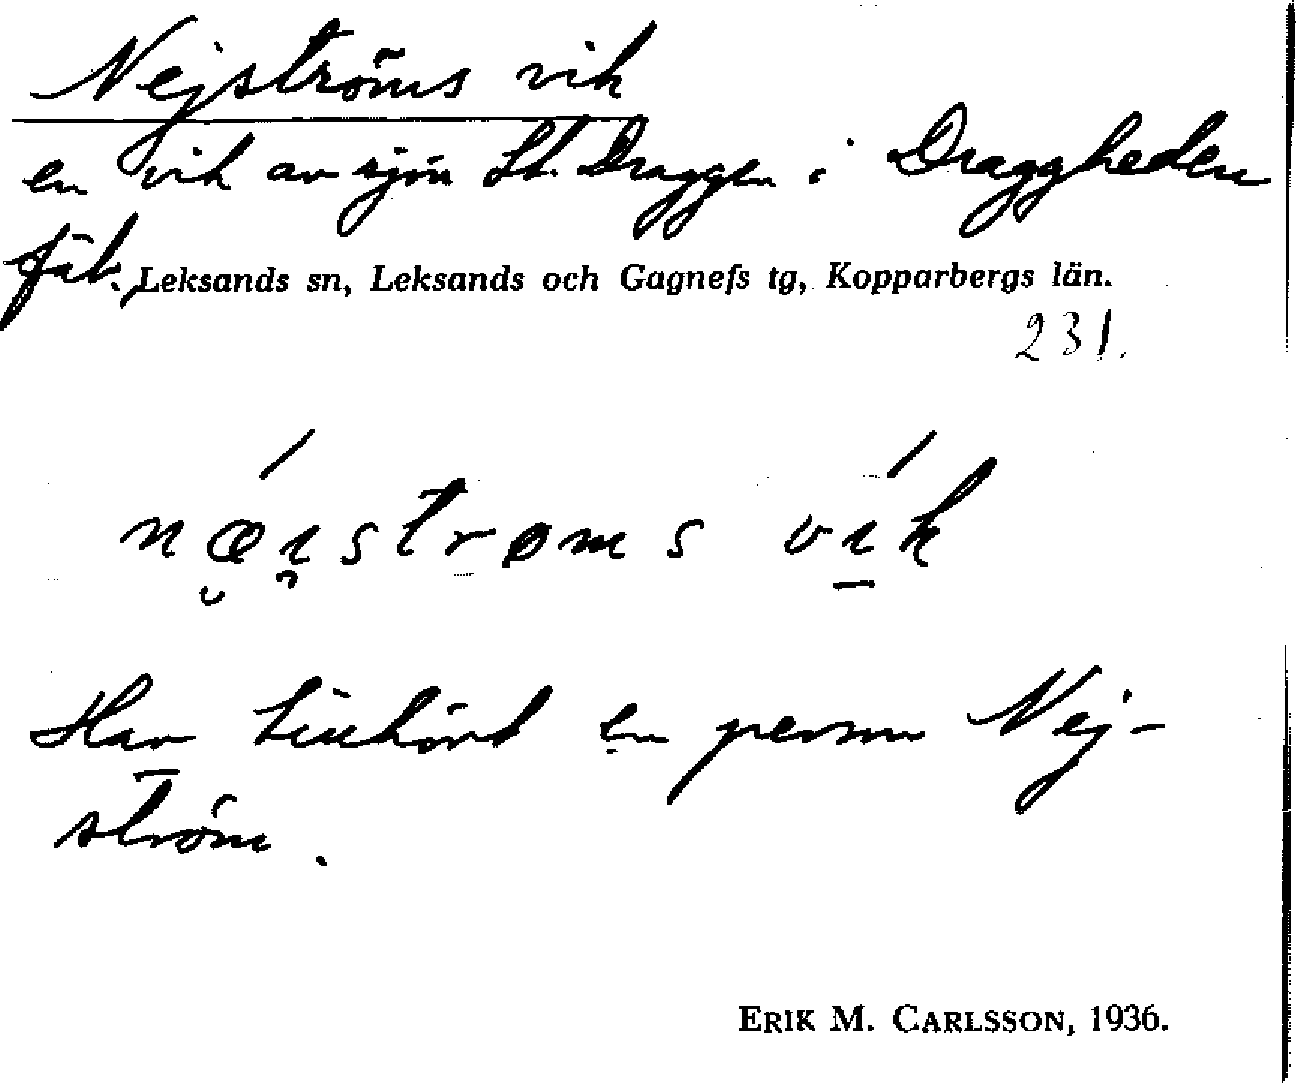 Nejströms vik
en vik av sjön St. Draggen i Draggheden
fäb. Leksands sn, Leksands och Gagnefs tg, Kopparbergs län.
231.
næ̮ı̯strøms vı̱k
Har tillhört en person Nej-
ström.
ERIK M. CARLSSON, 1936.